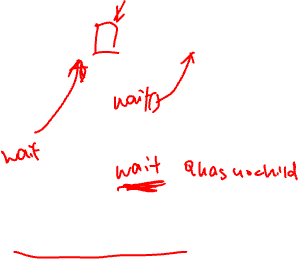 wait()
wait
wait @hasnochild